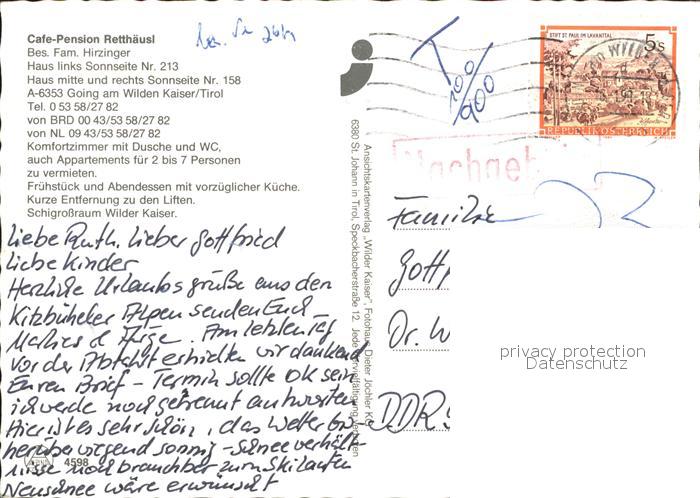 Cafe-Pension Retthäusl
Bes. Fam. Hirzinger
Haus links Sonnseite Nr. 213
Haus mitte und rechts Sonnseite Nr. 158
A-6353 Going am Wilden Kaiser/Tirol
Tel. 0 53 58/27 82
von BRD 00 43/53 58/27 82
von NL 09 43/53 58/27 82
Komfortzimmer mit Dusche und WC,
auch Appartements für 2 bis 7 Personen
zu vermieten.
Frühstück und Abendessen mit vorzüglicher Küche.
Kurze Entfernung zu den Liften.
Schigroßraum Wilder Kaiser.
Liebe Ruth, Lieber Gottfried
Liebe Kinder
Herzliche Urlaubsgrüße aus den
Kitzbüheler Alpen senden Euch
Am letzten Tag
vor der Abfahrt erhielten wir dankend
Euren Brief - Termin sollte OK sein
ich werde noch getrennt antworten
Hier ist es sehr schön, das Wetter
herüberwiegend sonnig - Schneeverhält-
nisse noch brauchbar zum Skilaufen
Neuschnee wäre erwünscht
4598
Ansichtskartenverlag „Wilder Kaiser", Fotohaus Dieter Jöchler KG
6380 St. Johann in Tirol, Speckbacherstraße 12. Jede Vervielfältigung verboten
T
100
900
STIFT ST. PAUL IM LAVANTTAL
5 S
REPUBLIK ÖSTERREICH
Nachgeb
Familie
Gottf
Dr. W
DDR
privacy protection
Datenschutz